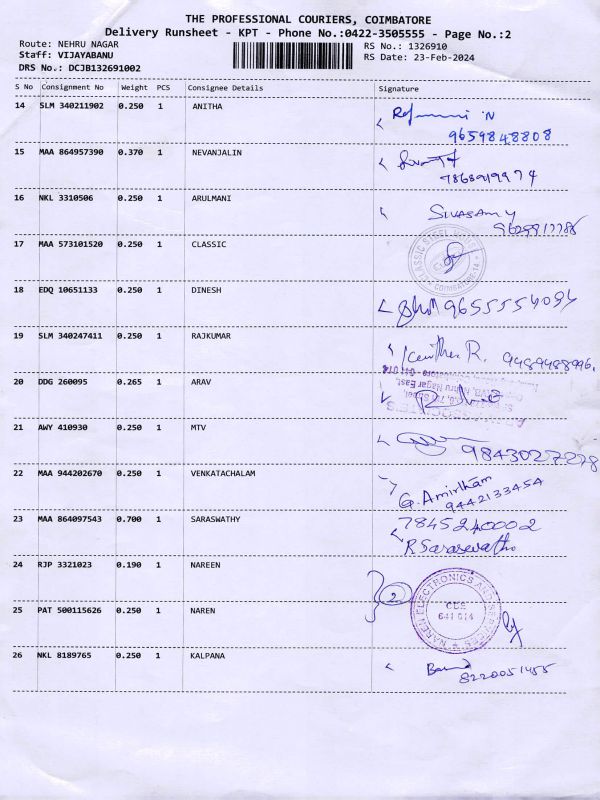 THE PROFESSIONAL COURIERS, COIMBATORE
Delivery Runsheet - KPT - Phone No.:0422-3505555 - Page No.:2
Route: NEHRU NAGAR
RS No.: 1326910
Staff: VIJAYABANU
RS Date: 23-Feb-2024
DRS No.: DCJB132691002
S No Consignment No Weight PCS Consignee Details Signature
14 SLM 340211902 0.250 1 ANITHA
9659848808
15 MAA 864957390 0.370 1 NEVANJALIN
7868919974
16 NKL 3310506 0.250 1 ARULMANI SIVASAMY
17 MAA 573101520 0.250 1 CLASSIC
CLASSIC STEEL
COIMBATORE-14
18 EDQ 10651133 0.250 1 DINESH 9655554094
19 SLM 340247411 0.250 1 RAJKUMAR R. 9489488996.
20 DDG 260095 0.265 1 ARAV
Nehru Nagar East,
21 AWY 410930 0.250 1 MTV
9843027278
22 MAA 944202670 0.250 1 VENKATACHALAM G. Amirtham
9442133454
23 MAA 864097543 0.700 1 SARASWATHY 7845240002
R Saraswathi
24 RJP 3321023 0.190 1 NAREEN 2
NAREN ELECTRONICS AND SERVICES
CBE
641 014
25 PAT 500115626 0.250 1 NAREN
26 NKL 8189765 0.250 1 KALPANA
8220051455